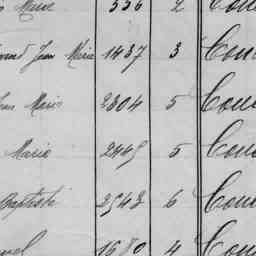 Marie 556 2 Cou
Jean Marie 1437 3 Cou
Jean Marie 2304 5 Cou
Marie 2445 5 Cou
Baptiste 2543 6 Cou
1680 4 Cou